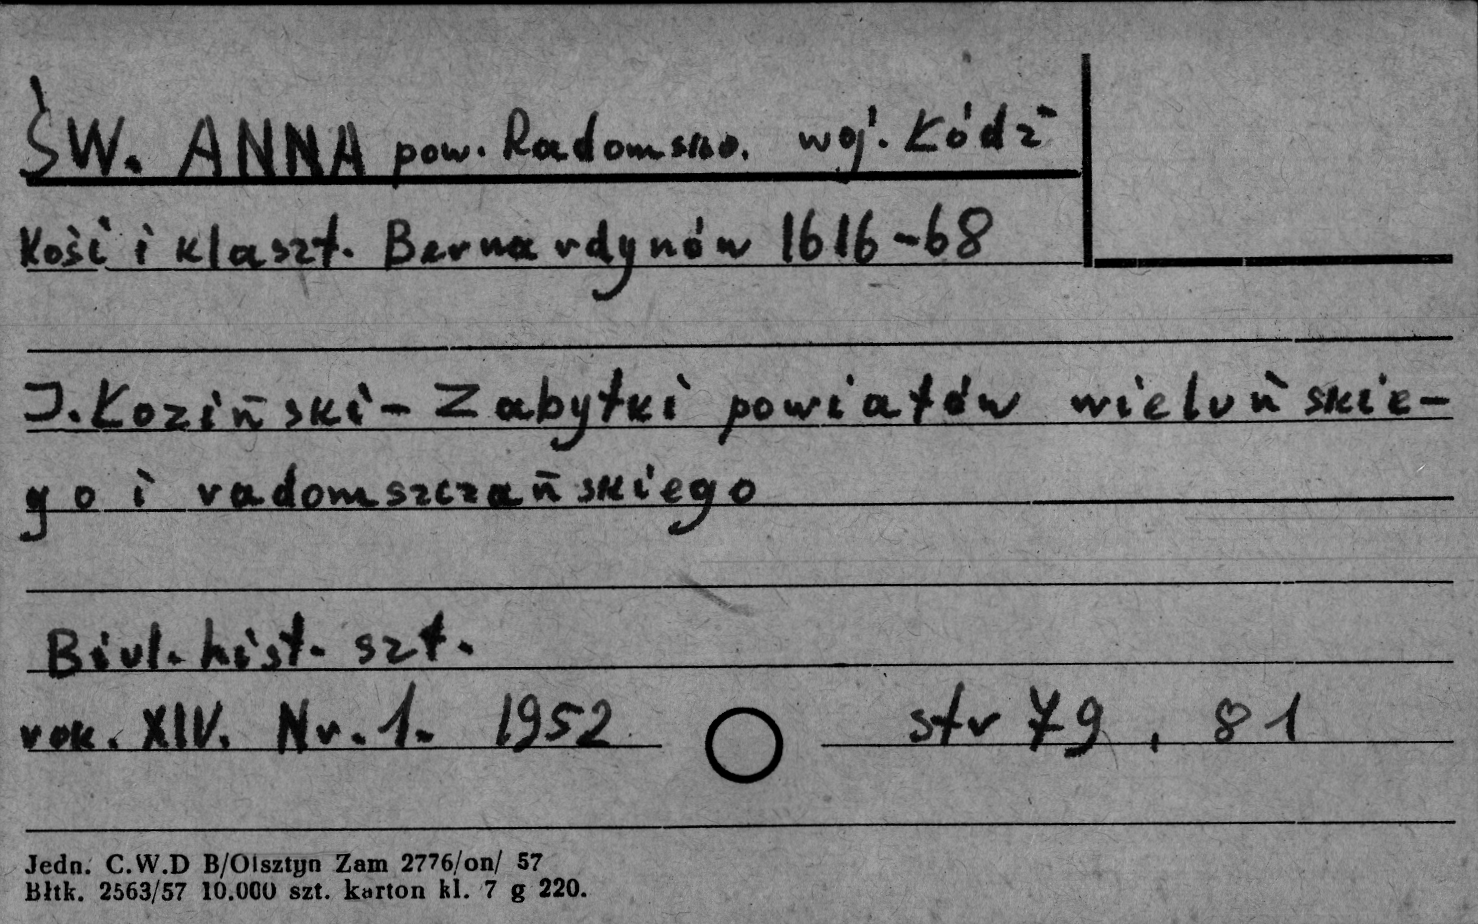 ŚW. ANNA pow. Radomsko. woj. Łódź
Kość i klaszt. Bernardynów 1616-68
J. Łoziński - Zabytki powiatów wieluńskie-
go i radomszczańskiego
Biul. hist. szt.
rok. XIV. Nr. 1. 1952 str 79, 81
Jedn. C.W.D B/Olsztyn Zam 2776/on/ 57
Błtk. 2563/57 10.000 szt. karton kl. 7 g 220.